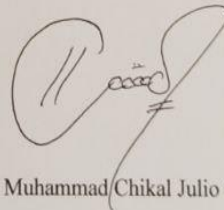 Muhammad Chikal Julio